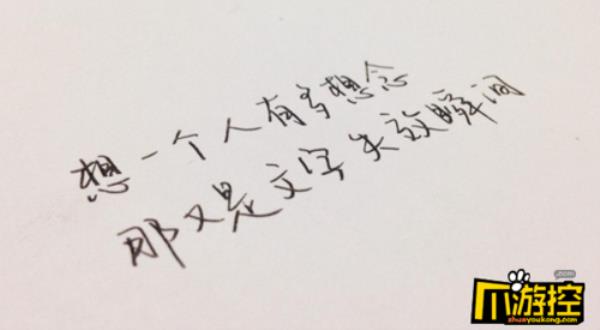 想一个人有多想念
那又是文字失效瞬间
爪游控
.com
zhuayoukong.com